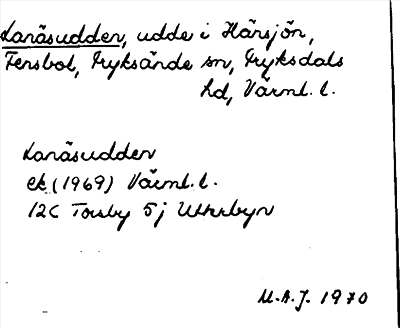 Lanäsudden, udde i Härsjön,
Fensbol, Fryksände sn, Fryksdals
hd, Värml. l.
Lanäsudden
ek (1969) Värml. l.
12C Torsby 5j Utterbyn
M.A.J. 1970